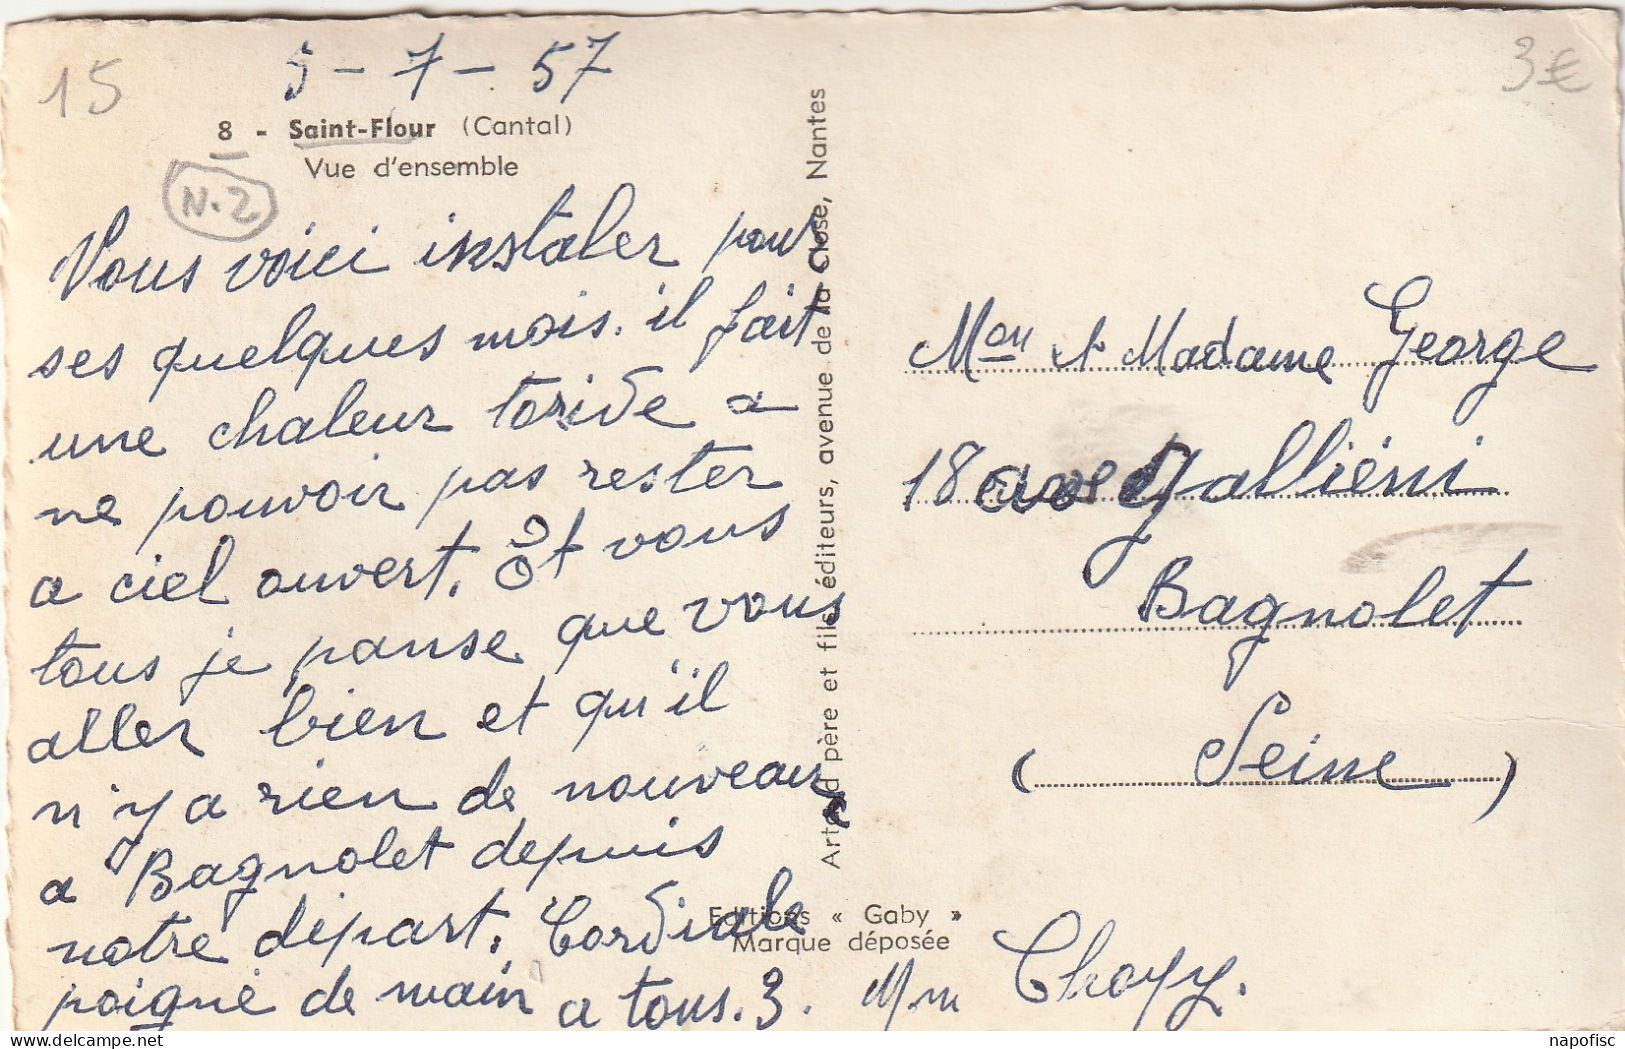 15
5-7-57
3€
8 - Saint-Flour (Cantal)
Vue d'ensemble
N.2
Vous voici instaler pour
ses quelques mois. il fait
une chaleur toride a
ne pouvoir pas rester
a ciel ouvert. Et vous
tous je panse que vous
aller bien et qu'il
n'y a rien de nouveaux
a Bagnolet depuis
notre départ. Cordiale
poigné de main a tous. 3.
Mm Choyy.
Artaud père et fils, éditeurs, avenue de la Close, Nantes
Editions « Gaby »
Marque déposée
Mon et Madame George
18 ave Galliéni
Bagnolet
(Seine)
napofisc